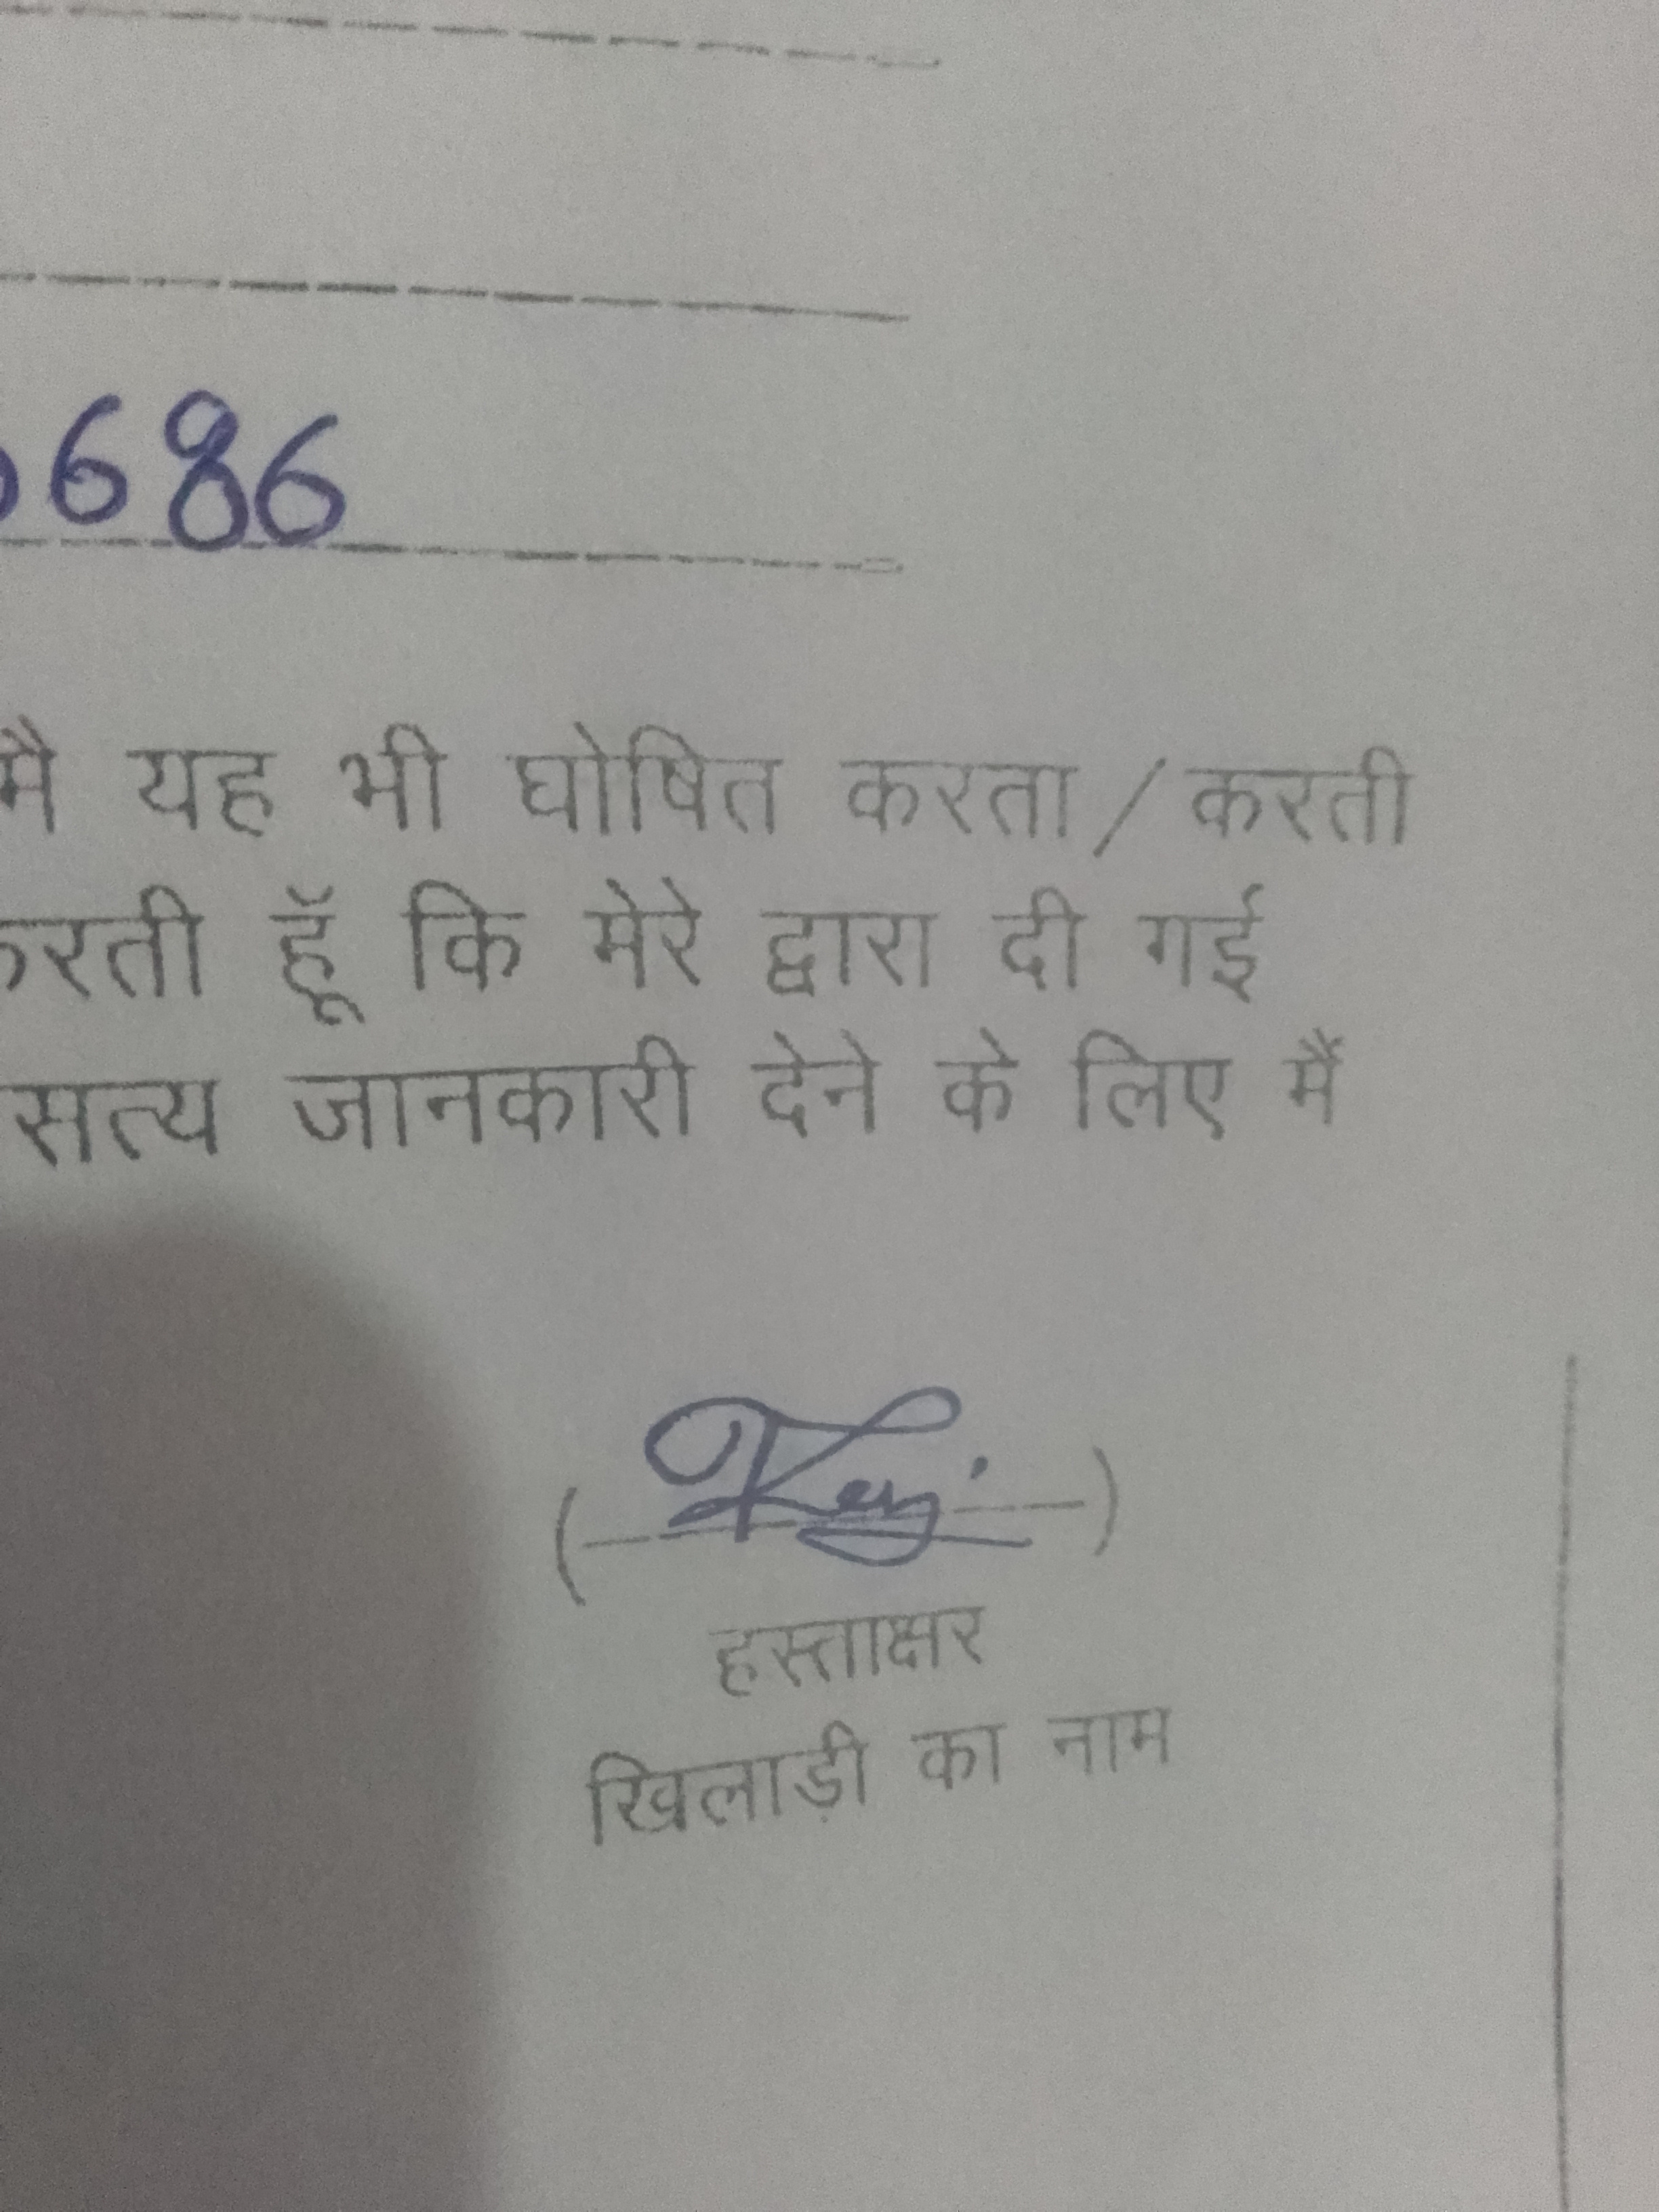 686
मै यह भी घोषित करता/करती
करती हूॅ कि मेरे द्वारा दी गई
सत्य जानकारी देने के लिए मैं
हस्ताक्षर
खिलाड़ी का नाम